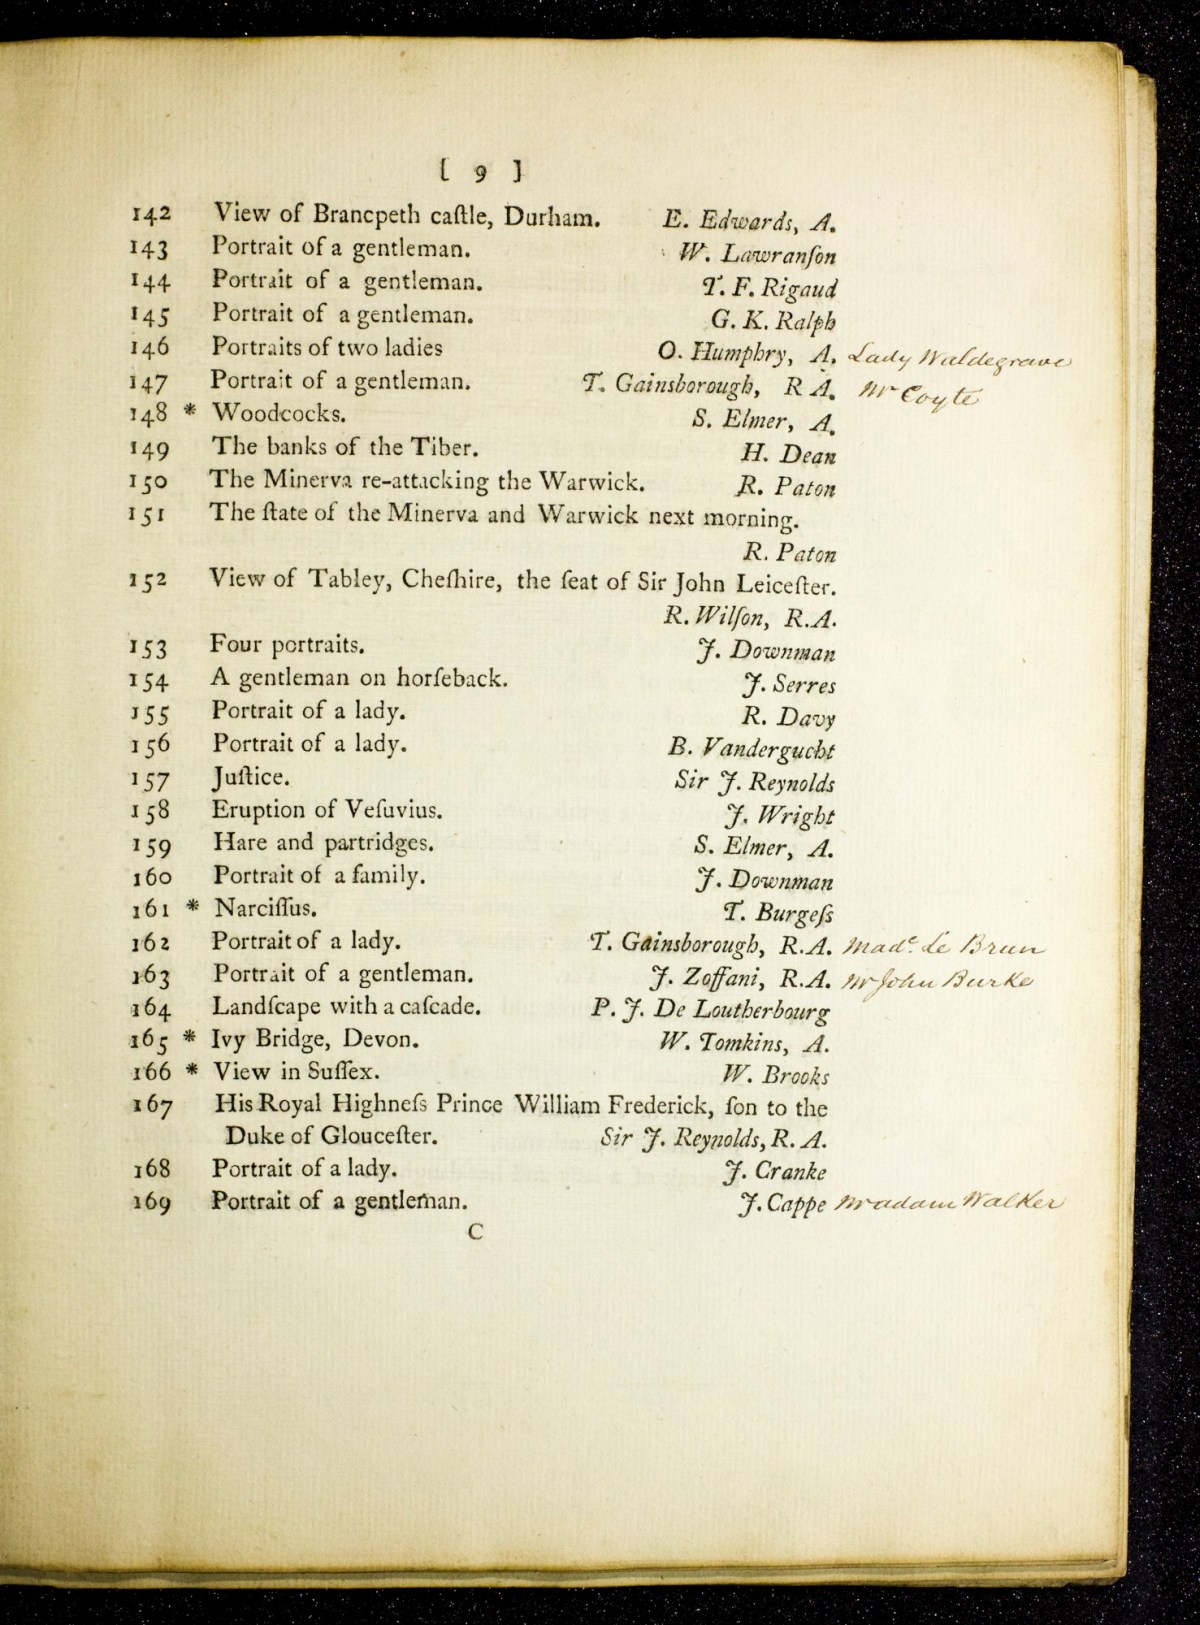 [ 9 ]
142 View of Brancpeth caſtle, Durham. E. Edwards, A.
143 Portrait of a gentleman. W. Lawranſon
144 Portrait of a gentleman. T. F. Rigaud
145 Portrait of a gentleman. G. K. Ralph
146 Portraits of two ladies O. Humphry, A. Lady Waldegrave
147 Portrait of a gentleman. T. Gainsborough, R A. Mr Coyte
148 * Woodcocks. S. Elmer, A.
149 The banks of the Tiber. H. Dean
150 The Minerva re-attacking the Warwick. R. Paton
151 The ſtate of the Minerva and Warwick next morning.
R. Paton
152 View of Tabley, Cheſhire, the ſeat of Sir John Leiceſter.
R. Wilſon, R.A.
153 Four portraits. J. Downman
154 A gentleman on horſeback. J. Serres
155 Portrait of a lady. R. Davy
156 Portrait of a lady. B. Vandergucht
157 Juſtice. Sir J. Reynolds
158 Eruption of Veſuvius. J. Wright
159 Hare and partridges. S. Elmer, A.
160 Portrait of a family. J. Downman
161 * Narciſſus. T. Burgeſs
162 Portrait of a lady. T. Gainsborough, R.A. Made. Le Brun
163 Portrait of a gentleman. J. Zoffani, R.A. Mr John Burke
164 Landſcape with a caſcade. P. J. De Loutherbourg
165 * Ivy Bridge, Devon. W. Tomkins, A.
166 * View in Suſſex. W. Brooks
167 His Royal Highneſs Prince William Frederick, ſon to the
Duke of Glouceſter. Sir J. Reynolds, R. A.
168 Portrait of a lady. J. Cranke
169 Portrait of a gentleman. J. Cappe Adam Walker
C